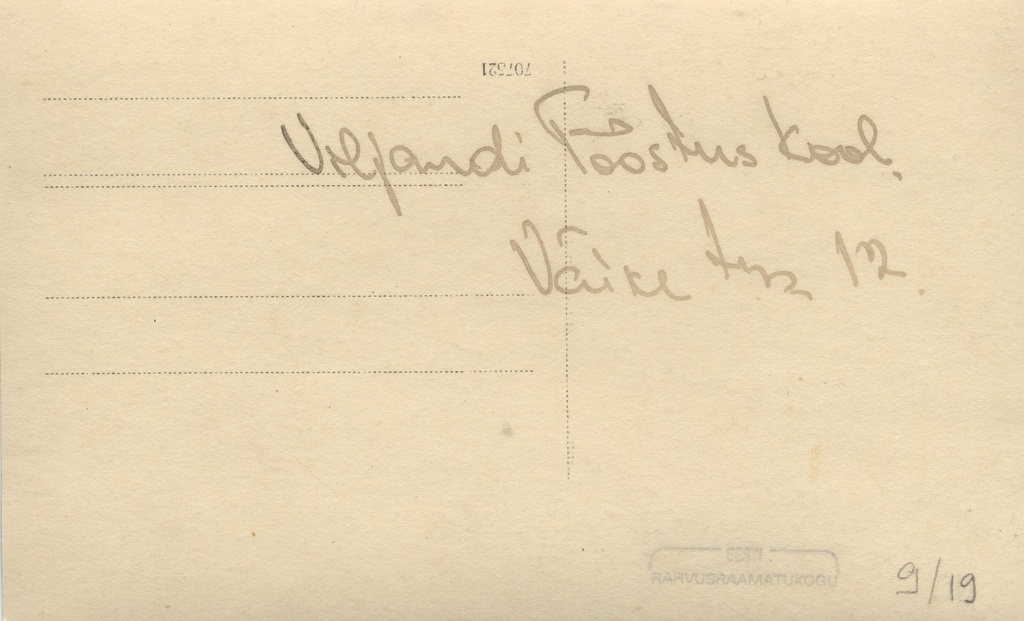 707521
Viljandi Tööstus Kool.
Väike trn 12.
EESTI
RAHVUSRAAMATUKOGU
9/19